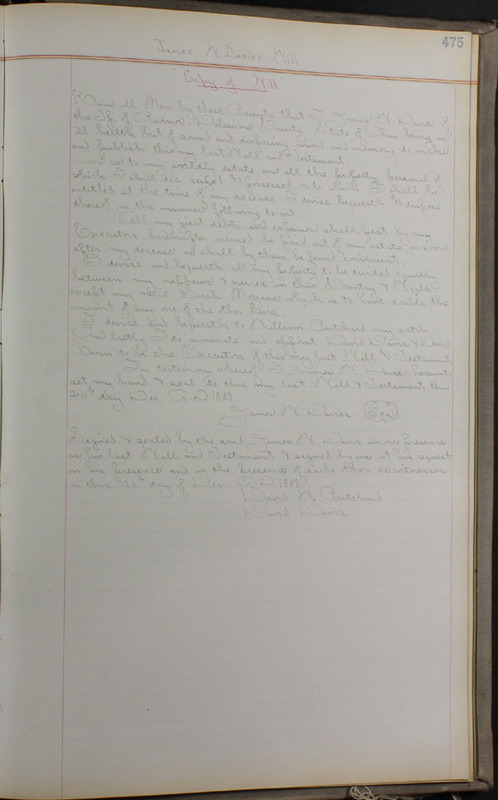 475
James W. Davies Will
"Copy of Will"
Know all Men by these Presents that I James W. Davis of
the Tp. of Radnor, Delaware County, State of Ohio being in
ill health but of sound and disposing mind and memory do make
and publish this my last Will and Testament.
And as to my worldly estate and all the property personal of
which I shall die seized & possessed or to which I shall be
entitled at the time of my decease I devise bequeath & dispose
thereof in the manner following to wit.
All my just debts and expenses shall first by my
Executors hereinafter named be paid out of my estate as soon
after my decease as shall by them be found convenient.
I devise and bequeath all my property to be divided equally
between my nephews & nieces in this Country & Wales
except my niece Sarah which is to have double the
amount of any one of the other heirs.
I devise and bequeath to William Pritchard my watch
And lastly I do nominate and appoint David Davis &
to be the Executors of this my last Will & Testament
In testimony whereof I James W. Davis hereunto
set my hand & seal to this my last Will & Testament this
20th day Dec. A. D 1889
James W. Davies Seal
Signed & sealed by the said James W. Davis in our presence
as his last Will and Testament & signed by us at his request
in his presence and in the presence of each other as witnesses
on this 20th day of Dec. A. D 1889
David W. Pritchard
David Davis